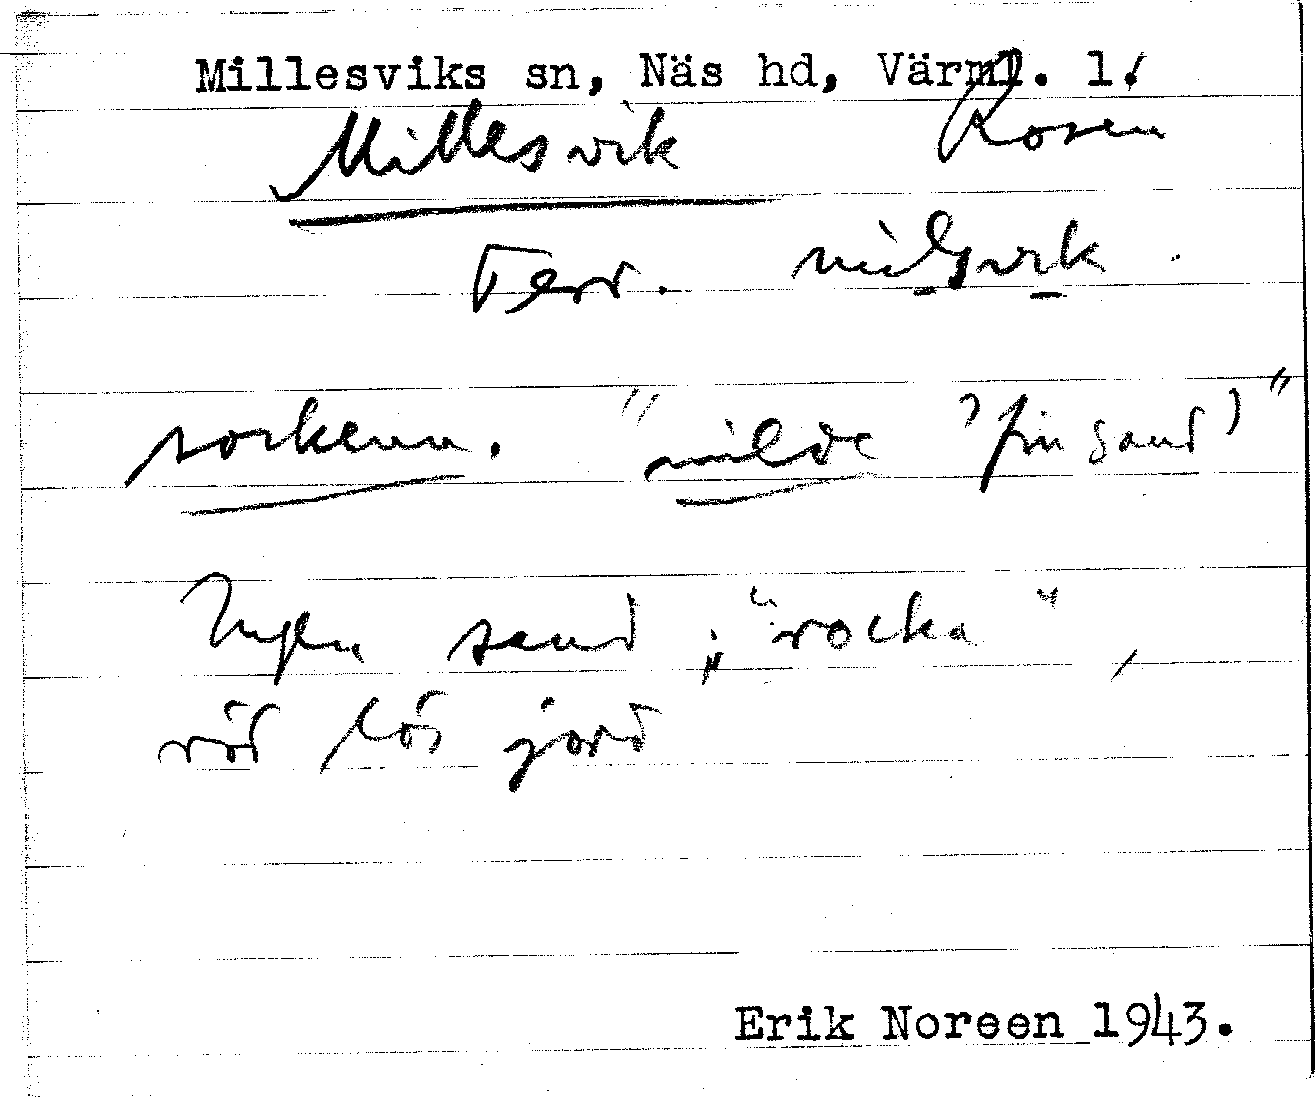 Millesviks sn, Näs hd, Värml. l.
Millesvik Rosen
Terr. milsvik.
socknen. "milde 'fin sand'"
Ingen sand; "rocka",
röd lös jord
Erik Noreen 1943.